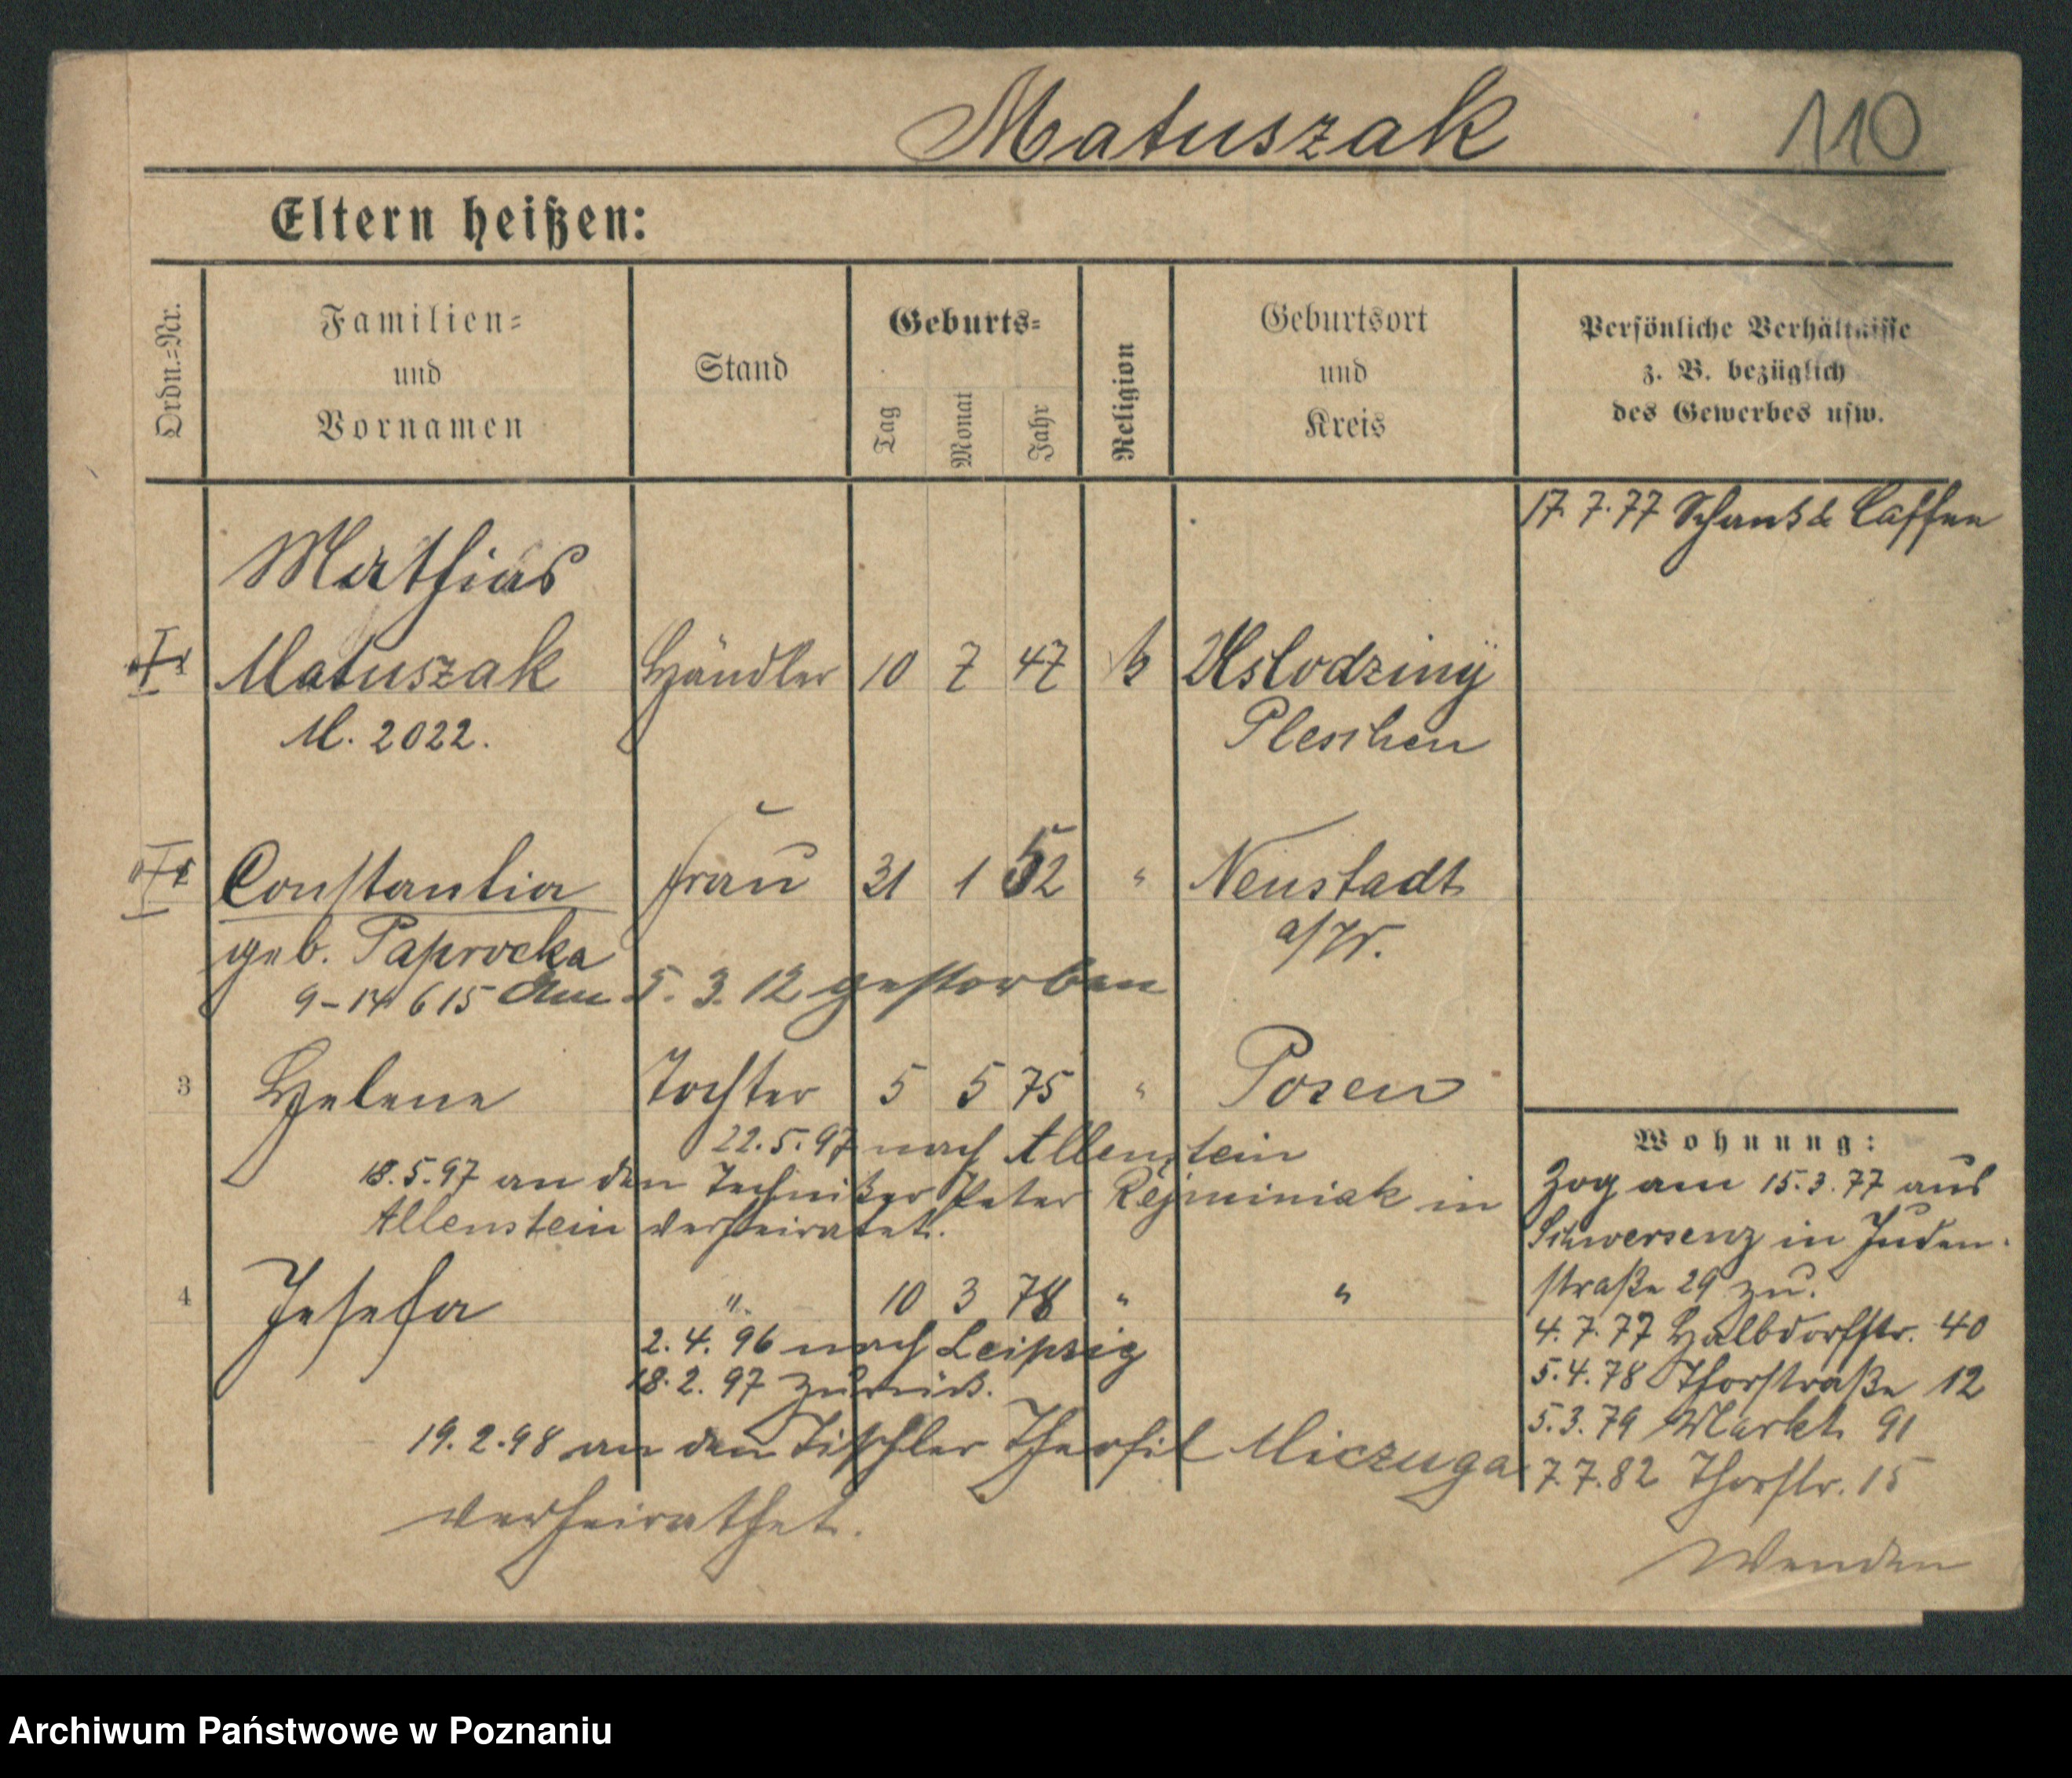 Matuszak
110
Eltern heißen:
Ordn.-Nr.
Familien-
und
Vornamen
Stand
Geburts-
Tag
Monat
Jahr
Religion
Geburtsort
und
Kreis
Persönliche Verhältnisse
z. B. bezüglich
des Gewerbes usw.
17.7.77 Schank & Caffee
Mathias
Matuszak Händler 10 7 47
M. 2022.
Pleschen
Constantia Frau 31 1 52 " Neustadt
a/W.
geb. Paprocka
9-14 615 Am 5.3.12 gestorben
3 Helene Tochter 5 5 75 " Posen
22.5.97 nach Allenstein
18.5.97 an den Techniker Peter Rejminiak in
Allenstein verheiratet.
4 Josefa " 10 3 78 " "
2.4.96 nach Leipzig
18.2.97 zurück.
19.2.98 an den Tischler Theofil Miczuga
verheirathet.
Wohnung:
Zog am 15.3.77 aus
Schwersenz in Juden-
straße 29 zu.
4.7.77 Halbdorfstr. 40
5.4.78 Thorstraße 12
5.3.79 Markt 91
7.7.82 Thorstr. 15
Wenden
Archiwum Państwowe w Poznaniu